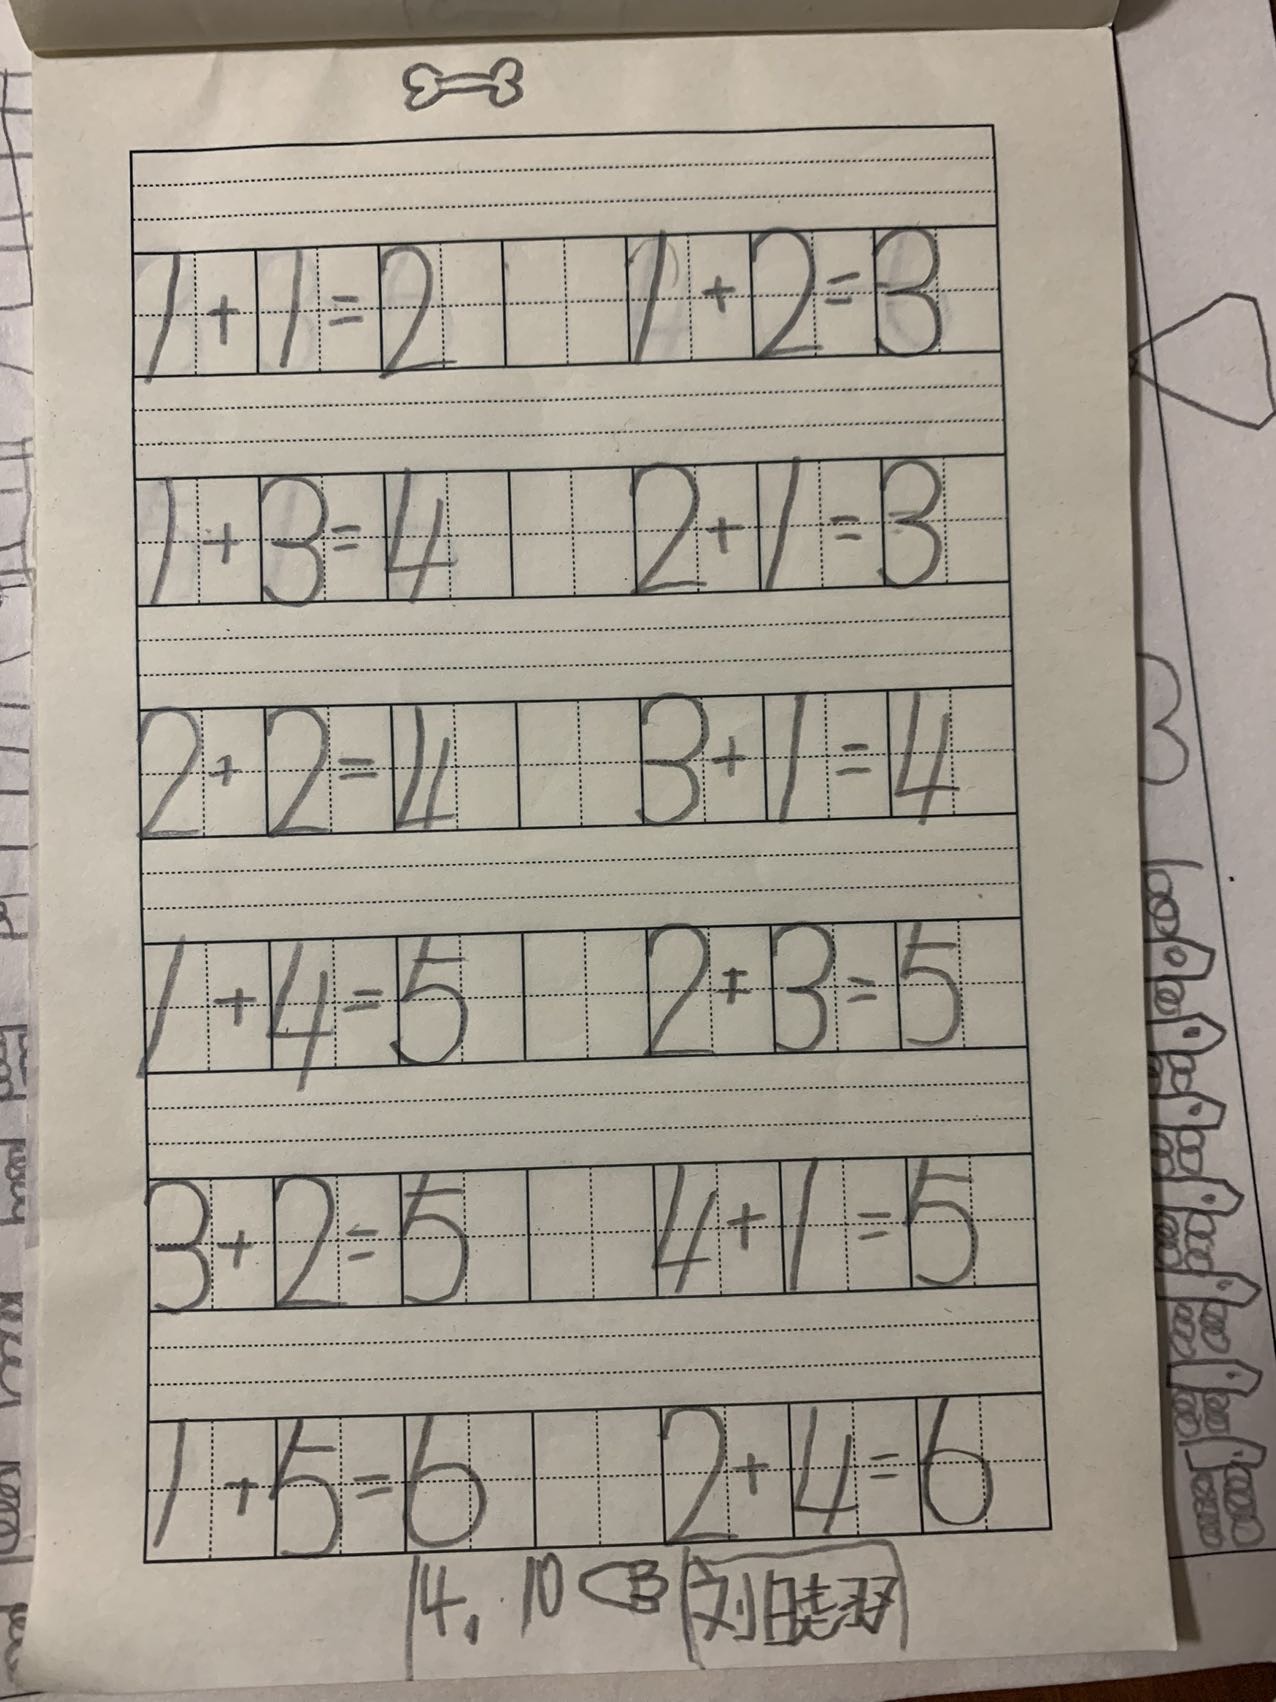 1+1=2 1+2=3
1+3=4 2+1=3
2+2=4 3+1=4
1+4=5 2+3=5
3+2=5 4+1=5
1+5=6 2+4=6
4.10 刘